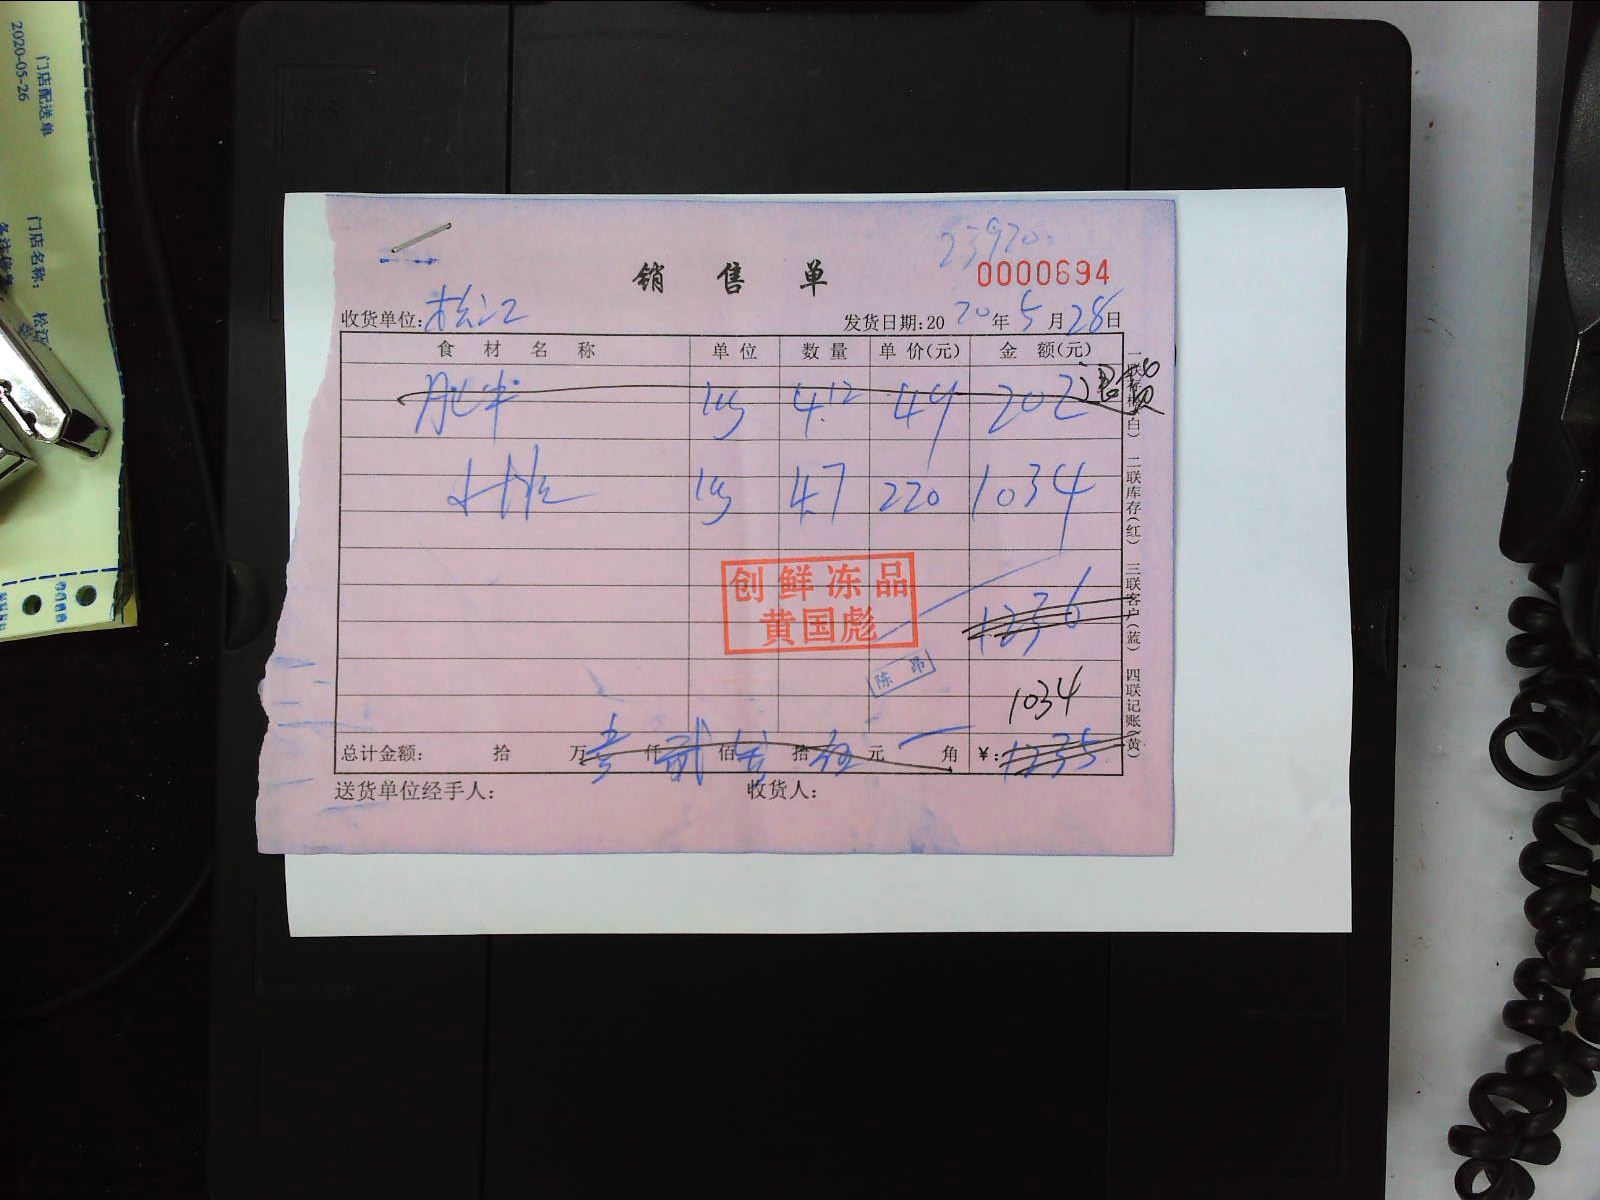 门店配送单
2020-05-26
门店名称: 松江
23920.
销 售 单
0000694
收货单位: 松江
发货日期:20 20 年 5 月 28 日
食 材 名 称 单 位 数 量 单 价(元) 金 额(元)
肥牛 kg 4.12 49 202 退货
kg 4.7 220 1034
创鲜冻品
黄国彪
1236
陈 昂
1034
总计金额: 拾 万 壹 仟 贰 佰 叁 拾 伍 元 角 ¥: 1235
送货单位经手人: 收货人:
一联存根(白) 二联库存(红) 三联客户(蓝) 四联记账(黄)